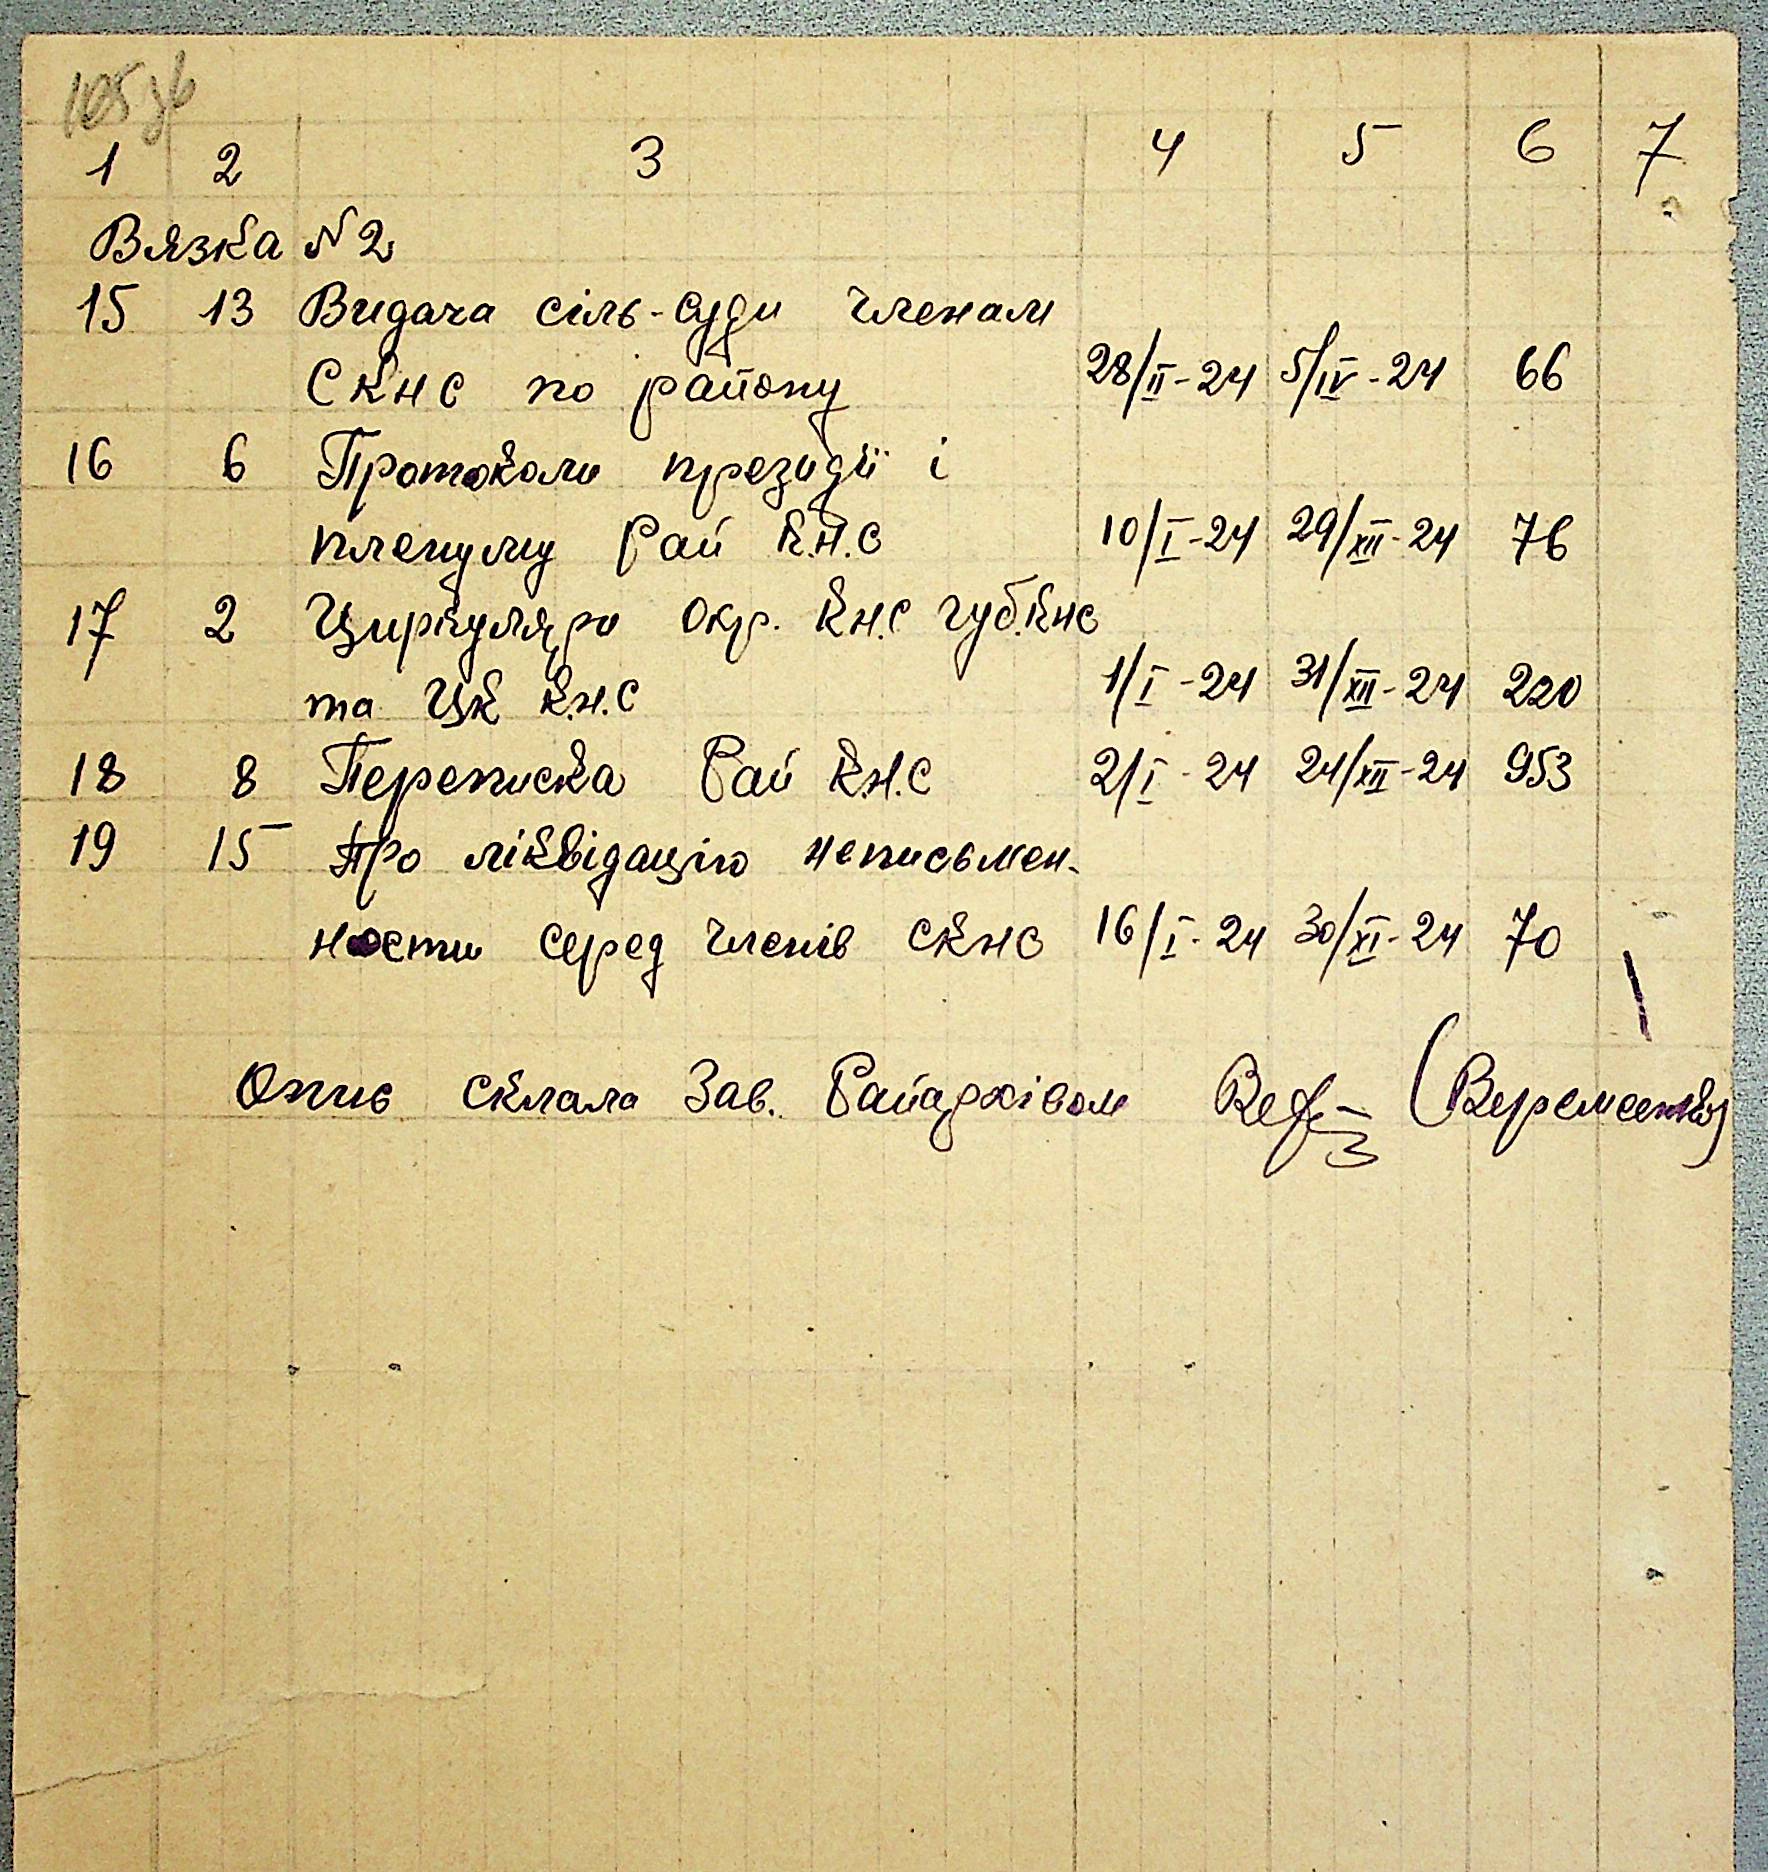 105 зв
1 2 3 4 5 6 7
Вязка №2
15 13 Видача сіль-суди членам
СКНС по району 28/II-24 5/IV-24 66
16 6 Протоколи президії і
пленуму Рай К.Н.С 10/I-24 29/XII-24 76
17 2 Циркуляри Окр. К.Н.С Губ.КНС
та ЦК К.Н.С 1/I-24 31/XII-24 220
18 8 Переписка Рай К.Н.С 2/I-24 24/XII-24 953
19 15 Про ліквідацію неписьмен-
ности серед членів СКНС 16/I-24 30/XI-24 70
Опис склала Зав. Райархівом (Веременко)